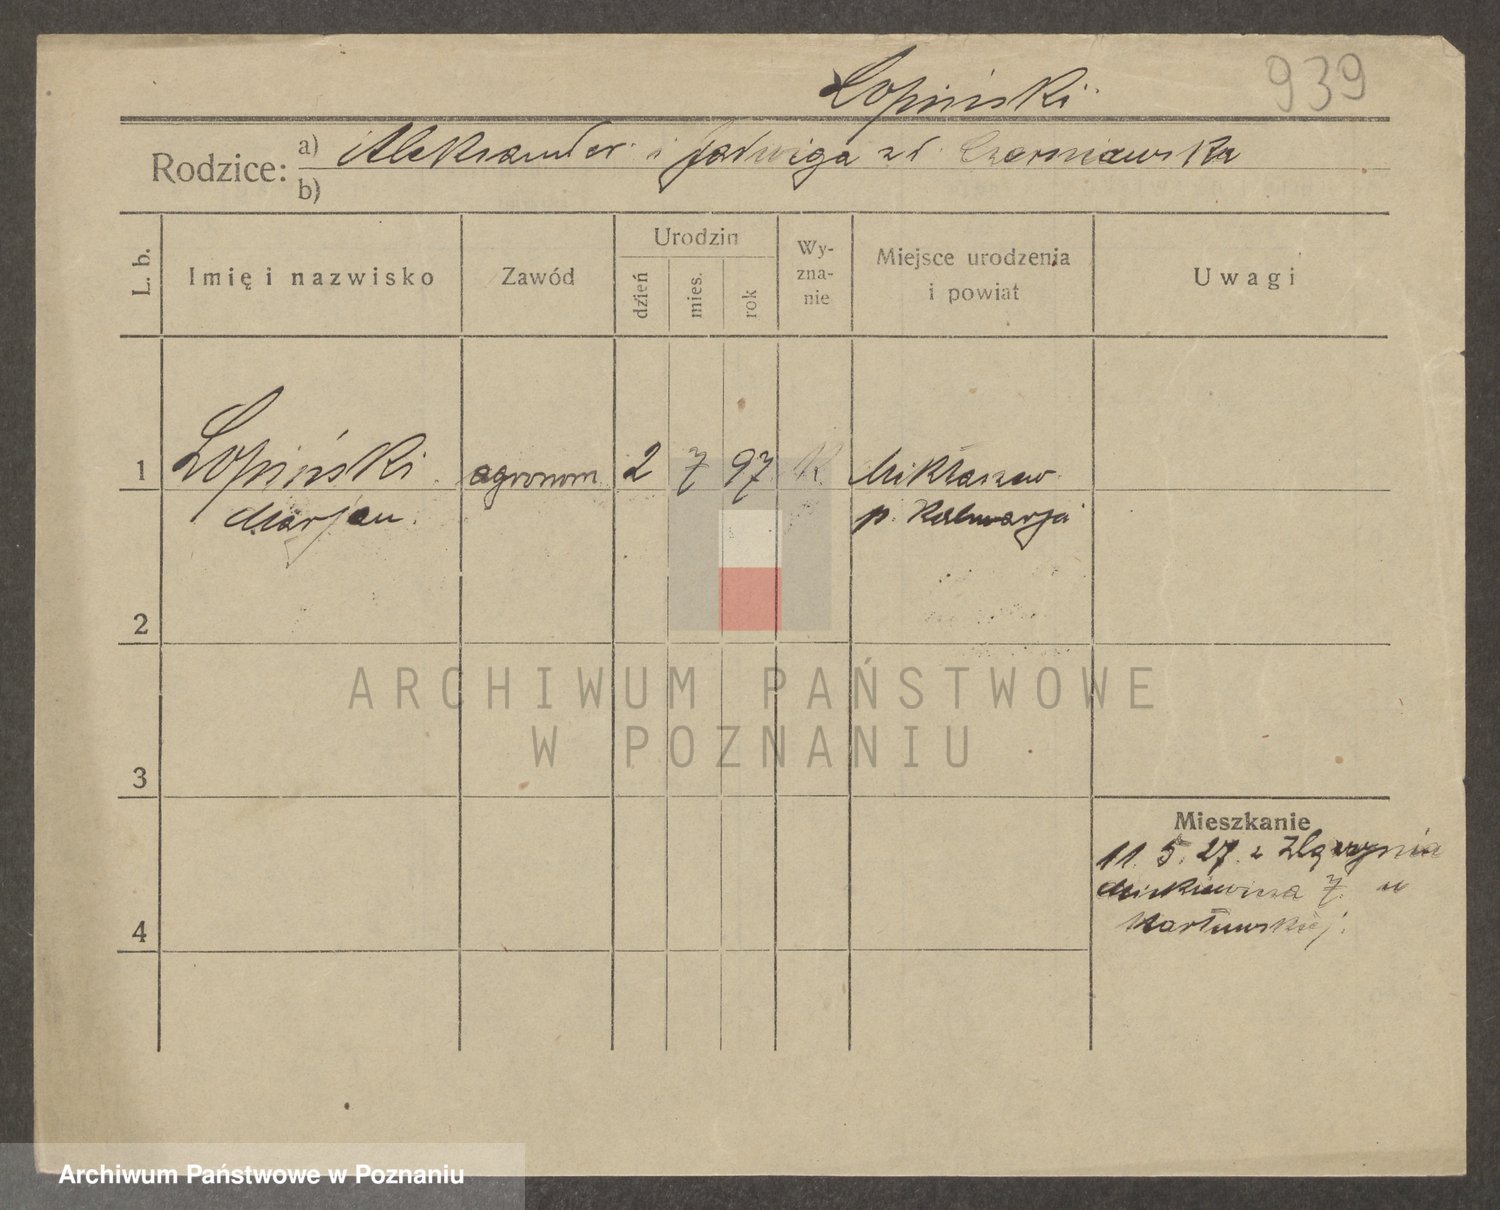 Łopiński
939
Rodzice: a) Aleksander i Jadwiga zd. Czerniawska
b)
L. b.
Imię i nazwisko
Zawód
Urodzin
dzień
mies.
rok
Wy-
zna-
nie
Miejsce urodzenia
i powiat
Uwagi
1 Łopiński agronom 2 7 97 K
Marjan.
p. Kalwarja
2
ARCHIWUM PAŃSTWOWE
W POZNANIU
3
Mieszkanie
11. 5. 27. z
Mickiewicza 7. u
4
Archiwum Państwowe w Poznaniu